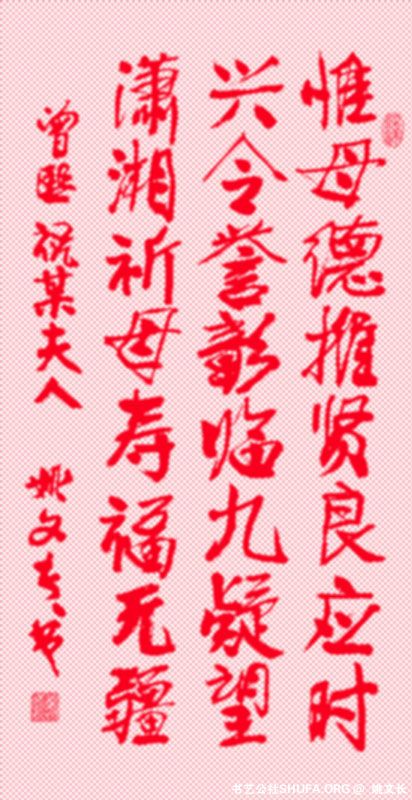 惟母德推贤良应时
兴令誉彰临九疑望
潇湘祈母寿福无疆
曾熙祝某夫人
姚文长书
书艺公社SHUFA.ORG @ 姚文长